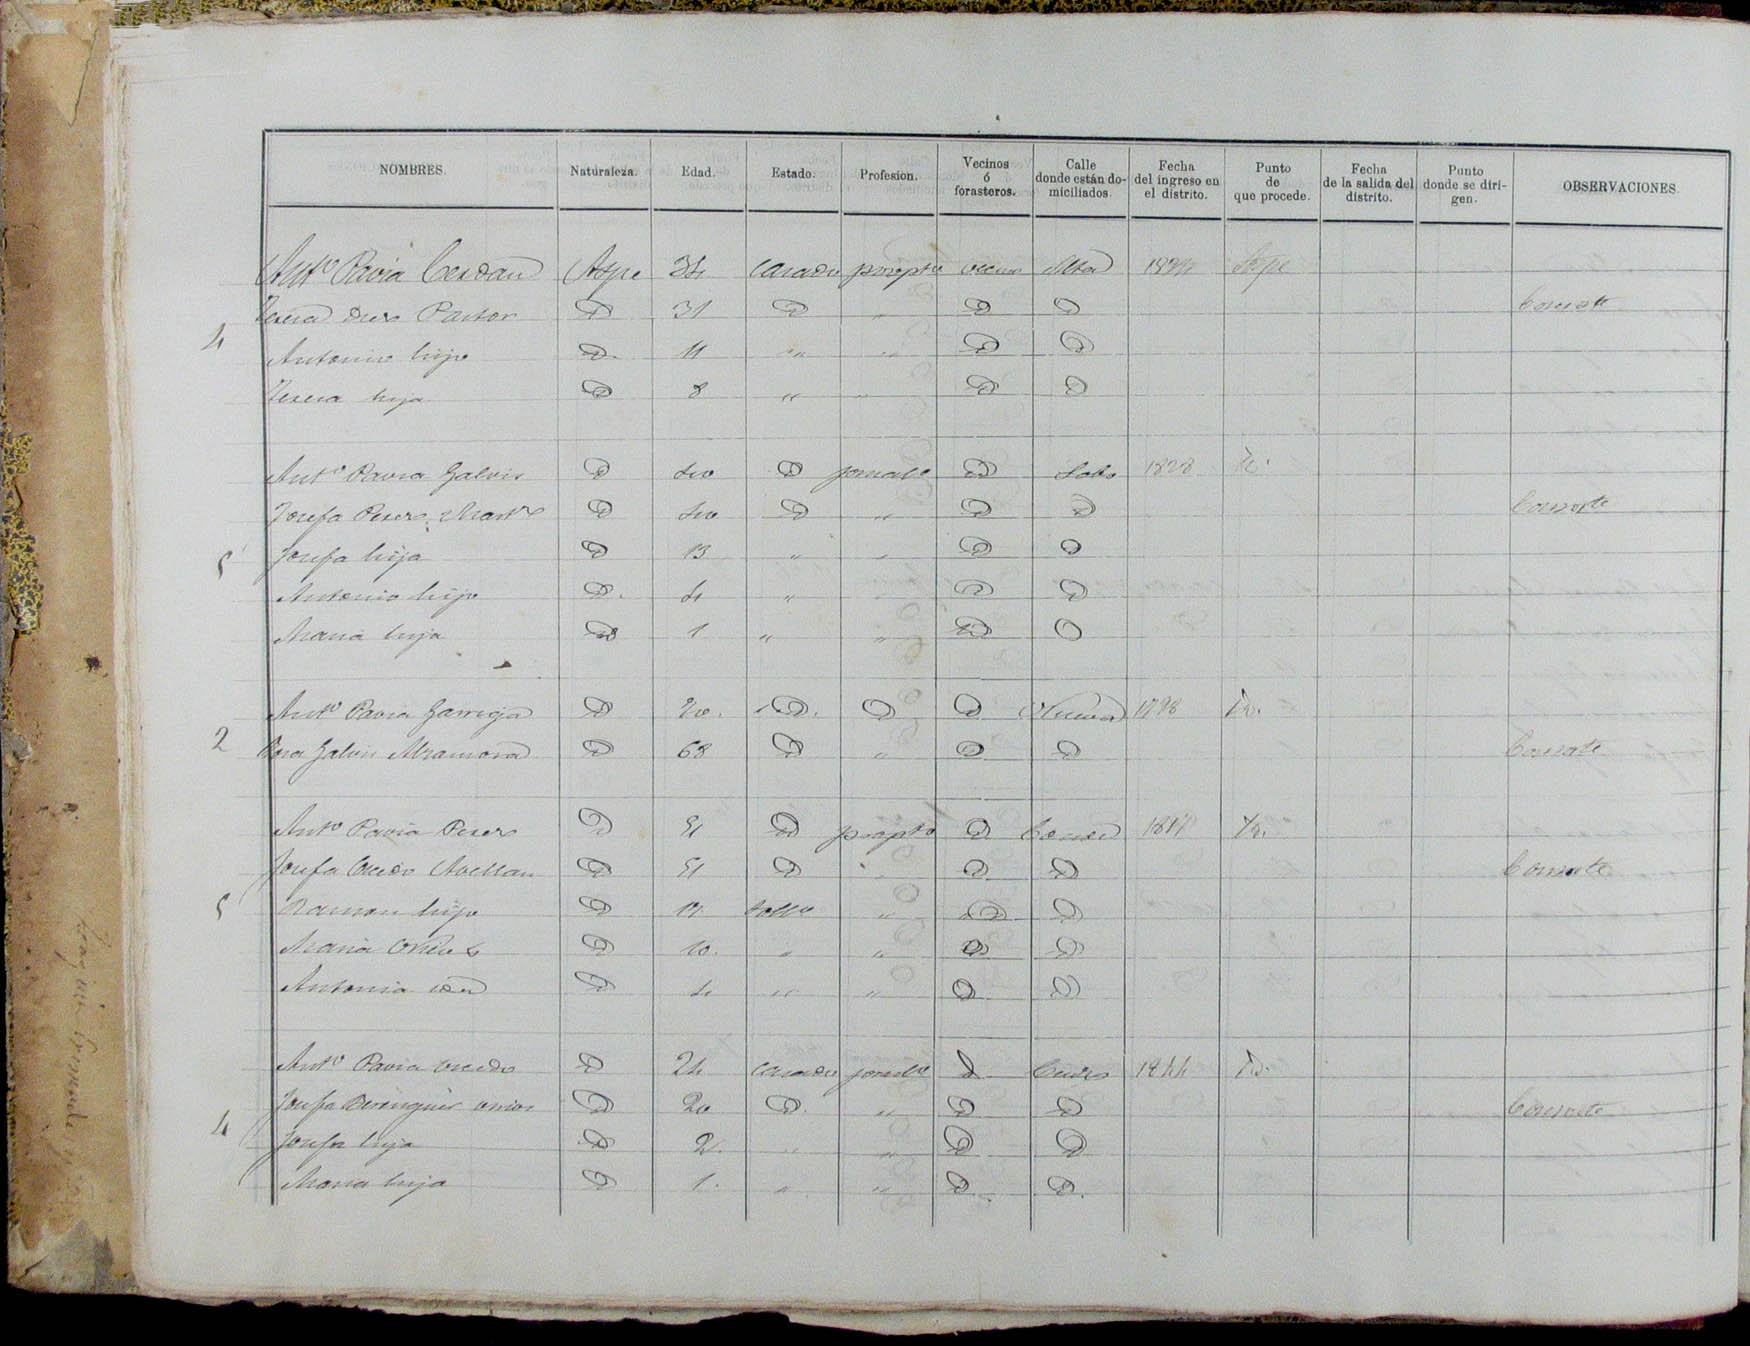 NOMBRES. Naturaleza. Edad. Estado. Profesion. Vecinos ó forasteros. Calle donde están domiciliados. Fecha del ingreso en el distrito. Punto de que procede. Fecha de la salida del distrito. Punto donde se dirigen. OBSERVACIONES.
Antº Pavia Cerdan Aspe 34 casado propto vecino Alta Aspe
Teresa Pastor D 31 D " D D Consorte
4
Antonio hijo D. 11 " " D D
Teresa hija D 8 " " D D
Antº Pavia Galvis D 40 D jornalº D 1828 Id.
Josefa Peres D 40 D " D D Consorte
5
Josefa hija D 13 " " D D
Antonio hijo D. 4 " " D D
Maria hija D 1 " " D D
Antº Pavia D D. D D Nueva 1798 Id.
2
Rosa Galvis D 68 D " D D Consorte
Antº Pavia Peres D 51 D propto D Id.
Josefa Avellan D 51 D " D D Consorte
5
Ramon hijo D soltº " D D
Maria D 10. " " D D
Antonia D 4 " " D D
Antº Pavia D 24 casado jornalº D 1844 Id.
Josefa Berenguer D 20 D. " D D Consorte
4
Josefa hija D 2. " " D D
Maria hija D 1. " " D D.